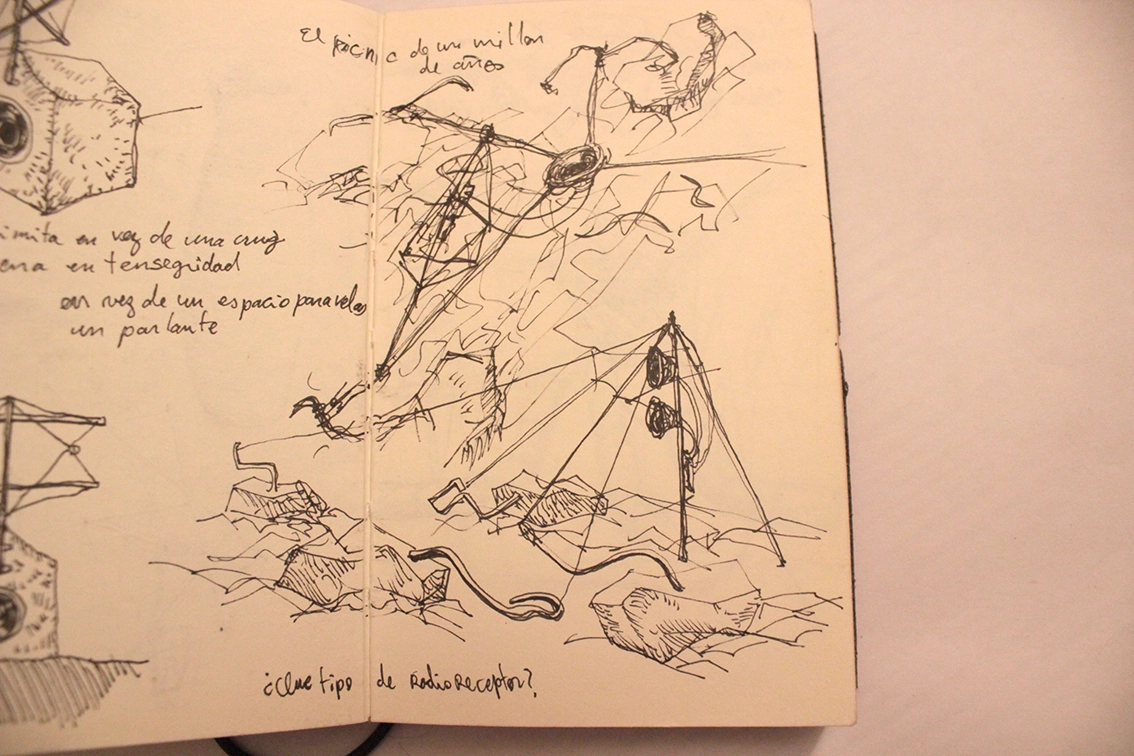 El picnic de un millon
de años
imita en vez de una cruz
en tensegridad
en vez de un espacio para velas
un parlante
¿Que tipo de RadioReceptor?